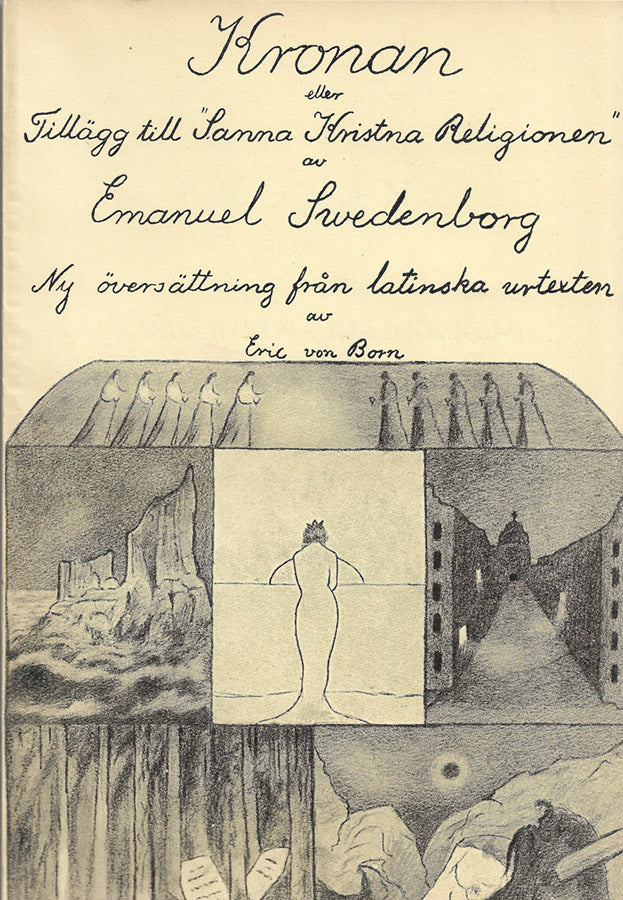 Kronan
eller
Tillägg till "Sanna Kristna Religionen"
av
Emanuel Swedenborg
Ny översättning från latinska urtexten
av
Eric von Born